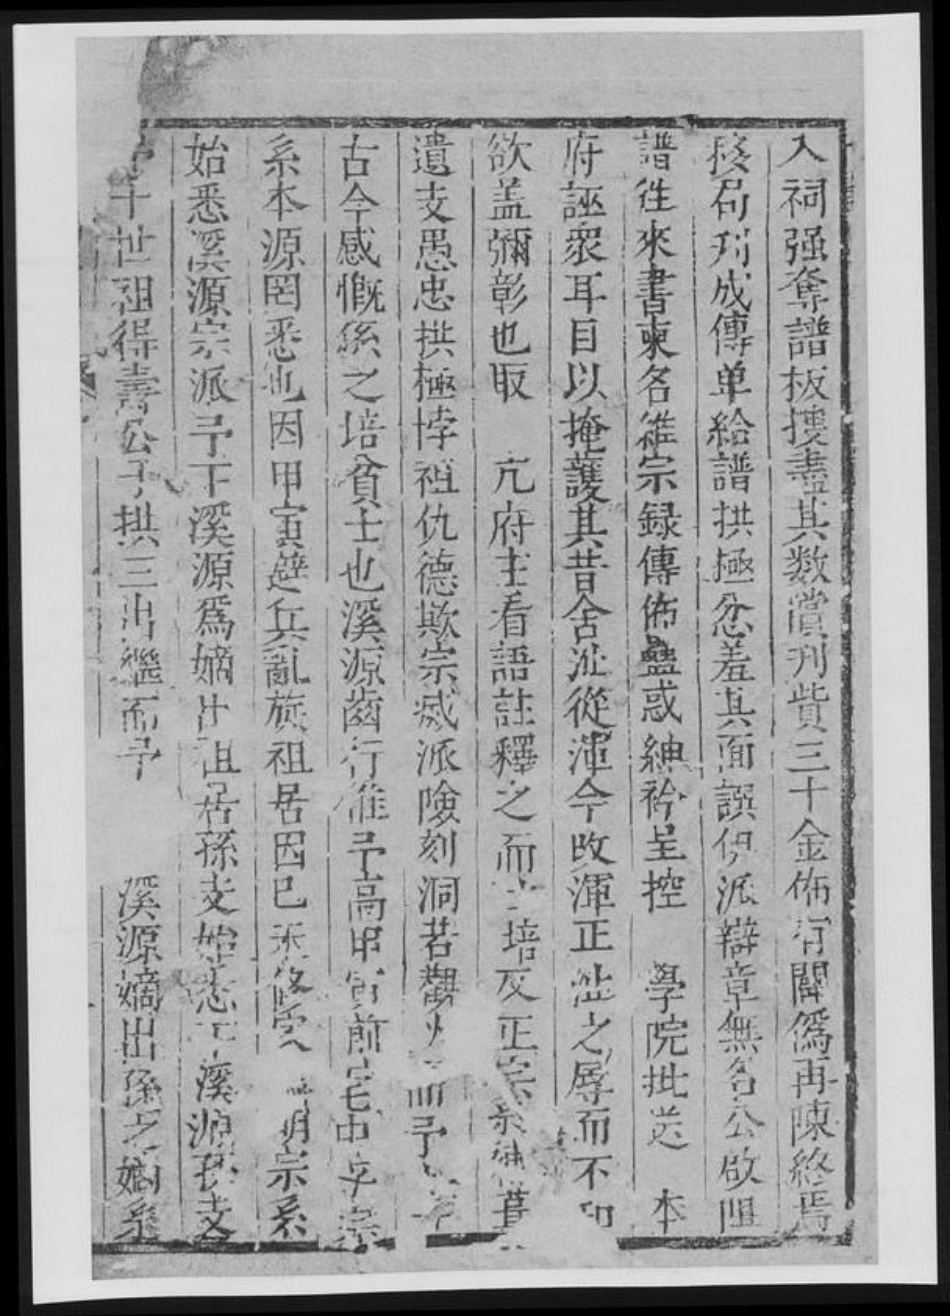 入祠强奪譜板摟盡其数賞刋貲三十金佈有關僞再陳終焉
按局刋成傳单給譜拱極忿羞其面誤伊派辯章無名公啟阻
譜徃來書柬名雖宗録傳佈蠱惑紳衿呈控　學院批送　本
府誣衆耳目以掩護其昔舍沚從渾今改渾正沚之辱而不
欲盖彌彰也取　亢府主看語註釋之而培反正宗
遺支愚忠拱極悖祖仇德欺宗滅派險刻洞若觀而予
古今感慨係之培貧士也溪源齒行惟予高甲寅前宅中
系本源罔悉也因甲寅避兵亂旋祖居因巳未修明宗系
始悉溪源宗派予下溪源爲嫡出祖居孫支始悉下溪源孫支
十世祖得壽公子拱三出繼而予　　溪源嫡出孫之嫡系